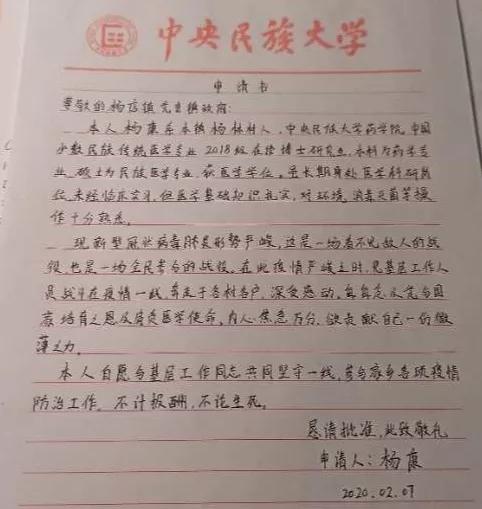 中央民族大学
申请书
尊敬的杨店镇党委镇政府:
本人杨康系本镇杨林村人,中央民族大学药学院,中国
少数民族传统医学专业2018级在读博士研究生,本科为药学专
业,硕士为民族医学专业,获医学学位。虽长期身处医学科研岗
位,未经临床实习,但医学基础知识扎实,对环境、消毒灭菌等操
作十分熟悉。
现新型冠状病毒肺炎形势严峻,这是一场看不见敌人的战
役,也是一场全民参与的战役。在此疫情严峻之时,见基层工作人
员战斗在疫情一线,奔走于各村各户,深受感动,自知党与国
家培育之恩及肩负医学使命,内心焦急万分,欲贡献自己一份微
薄之力。
本人自愿与基层工作同志共同坚守一线,参与家乡各项疫情
防治工作,不计报酬,不论生死。
恳请批准,此致敬礼
申请人:杨康
2020.02.07